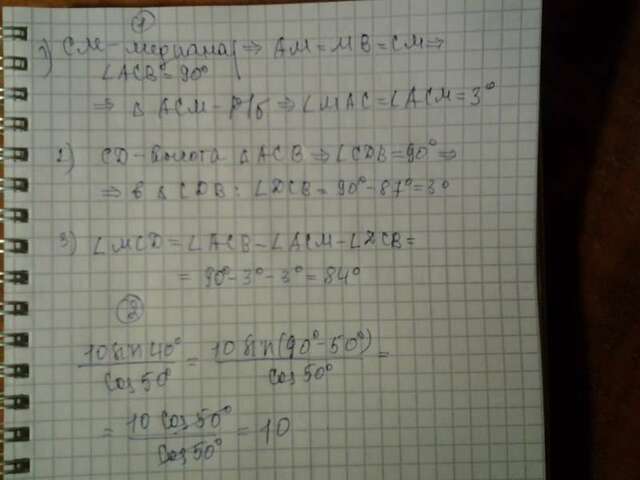 ①
1) CM - медиана ⇒ AM = MB = CM ⇒
∠ACB = 90°
⇒ △ ACM - р/б ⇒ ∠MAC = ∠ACM = 3°
2) CD - высота △ ACB ⇒ ∠CDB = 90° ⇒
⇒ в △ CDB: ∠DCB = 90° - 87° = 3°
3) ∠MCD = ∠ACB - ∠ACM - ∠DCB =
= 90° - 3° - 3° = 84°
②
10 sin 40° / cos 50° = 10 sin(90° - 50°) / cos 50° =
= 10 cos 50° / cos 50° = 10